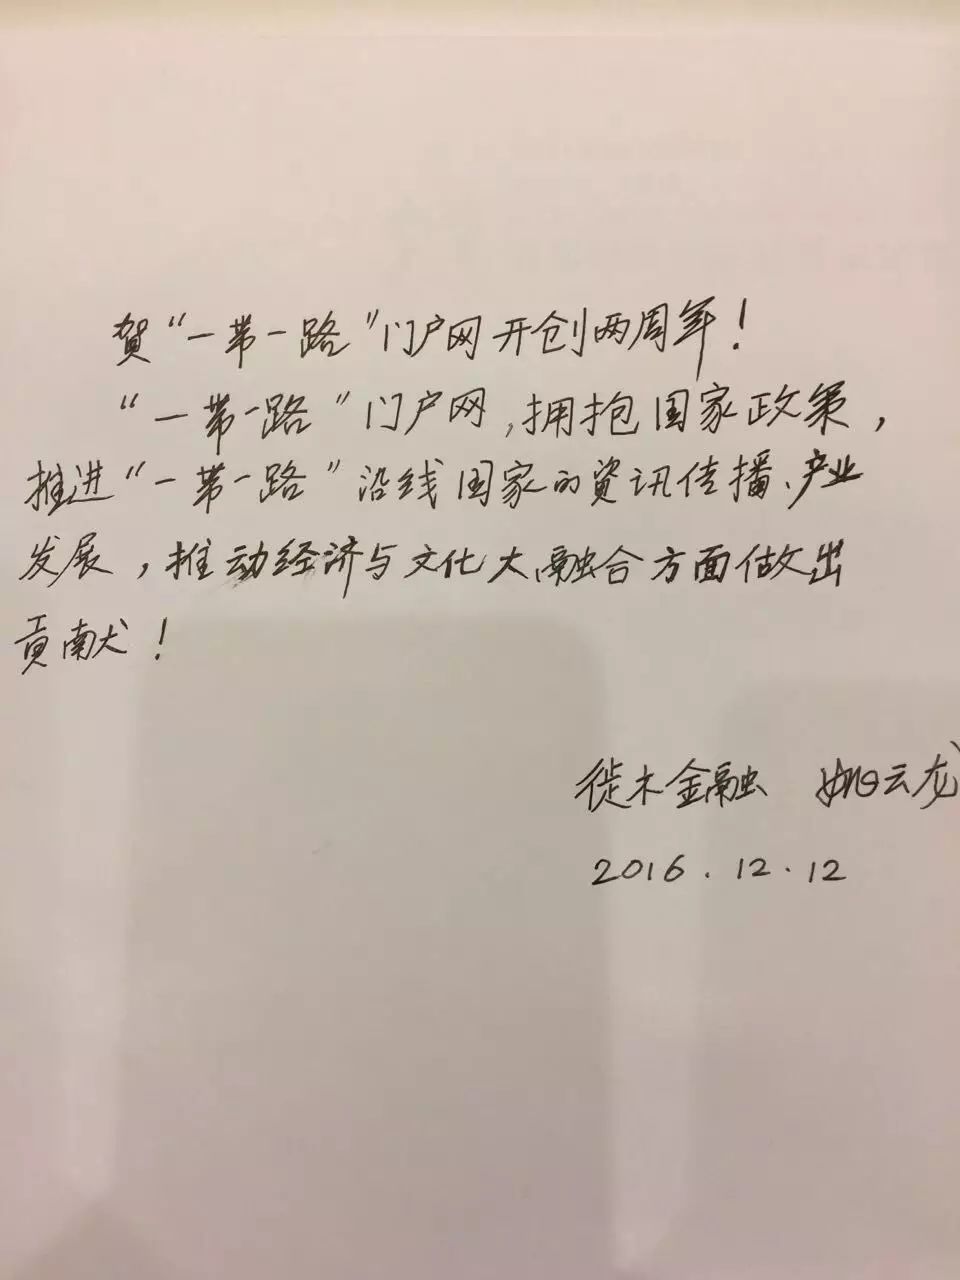 贺“一带一路”门户网开创两周年！
“一带一路”门户网,拥抱国家政策，
推进“一带一路”沿线国家的资讯传播、产业
发展，推动经济与文化大融合方面做出
贡献！
徙木金融 姚云龙
2016.12.12